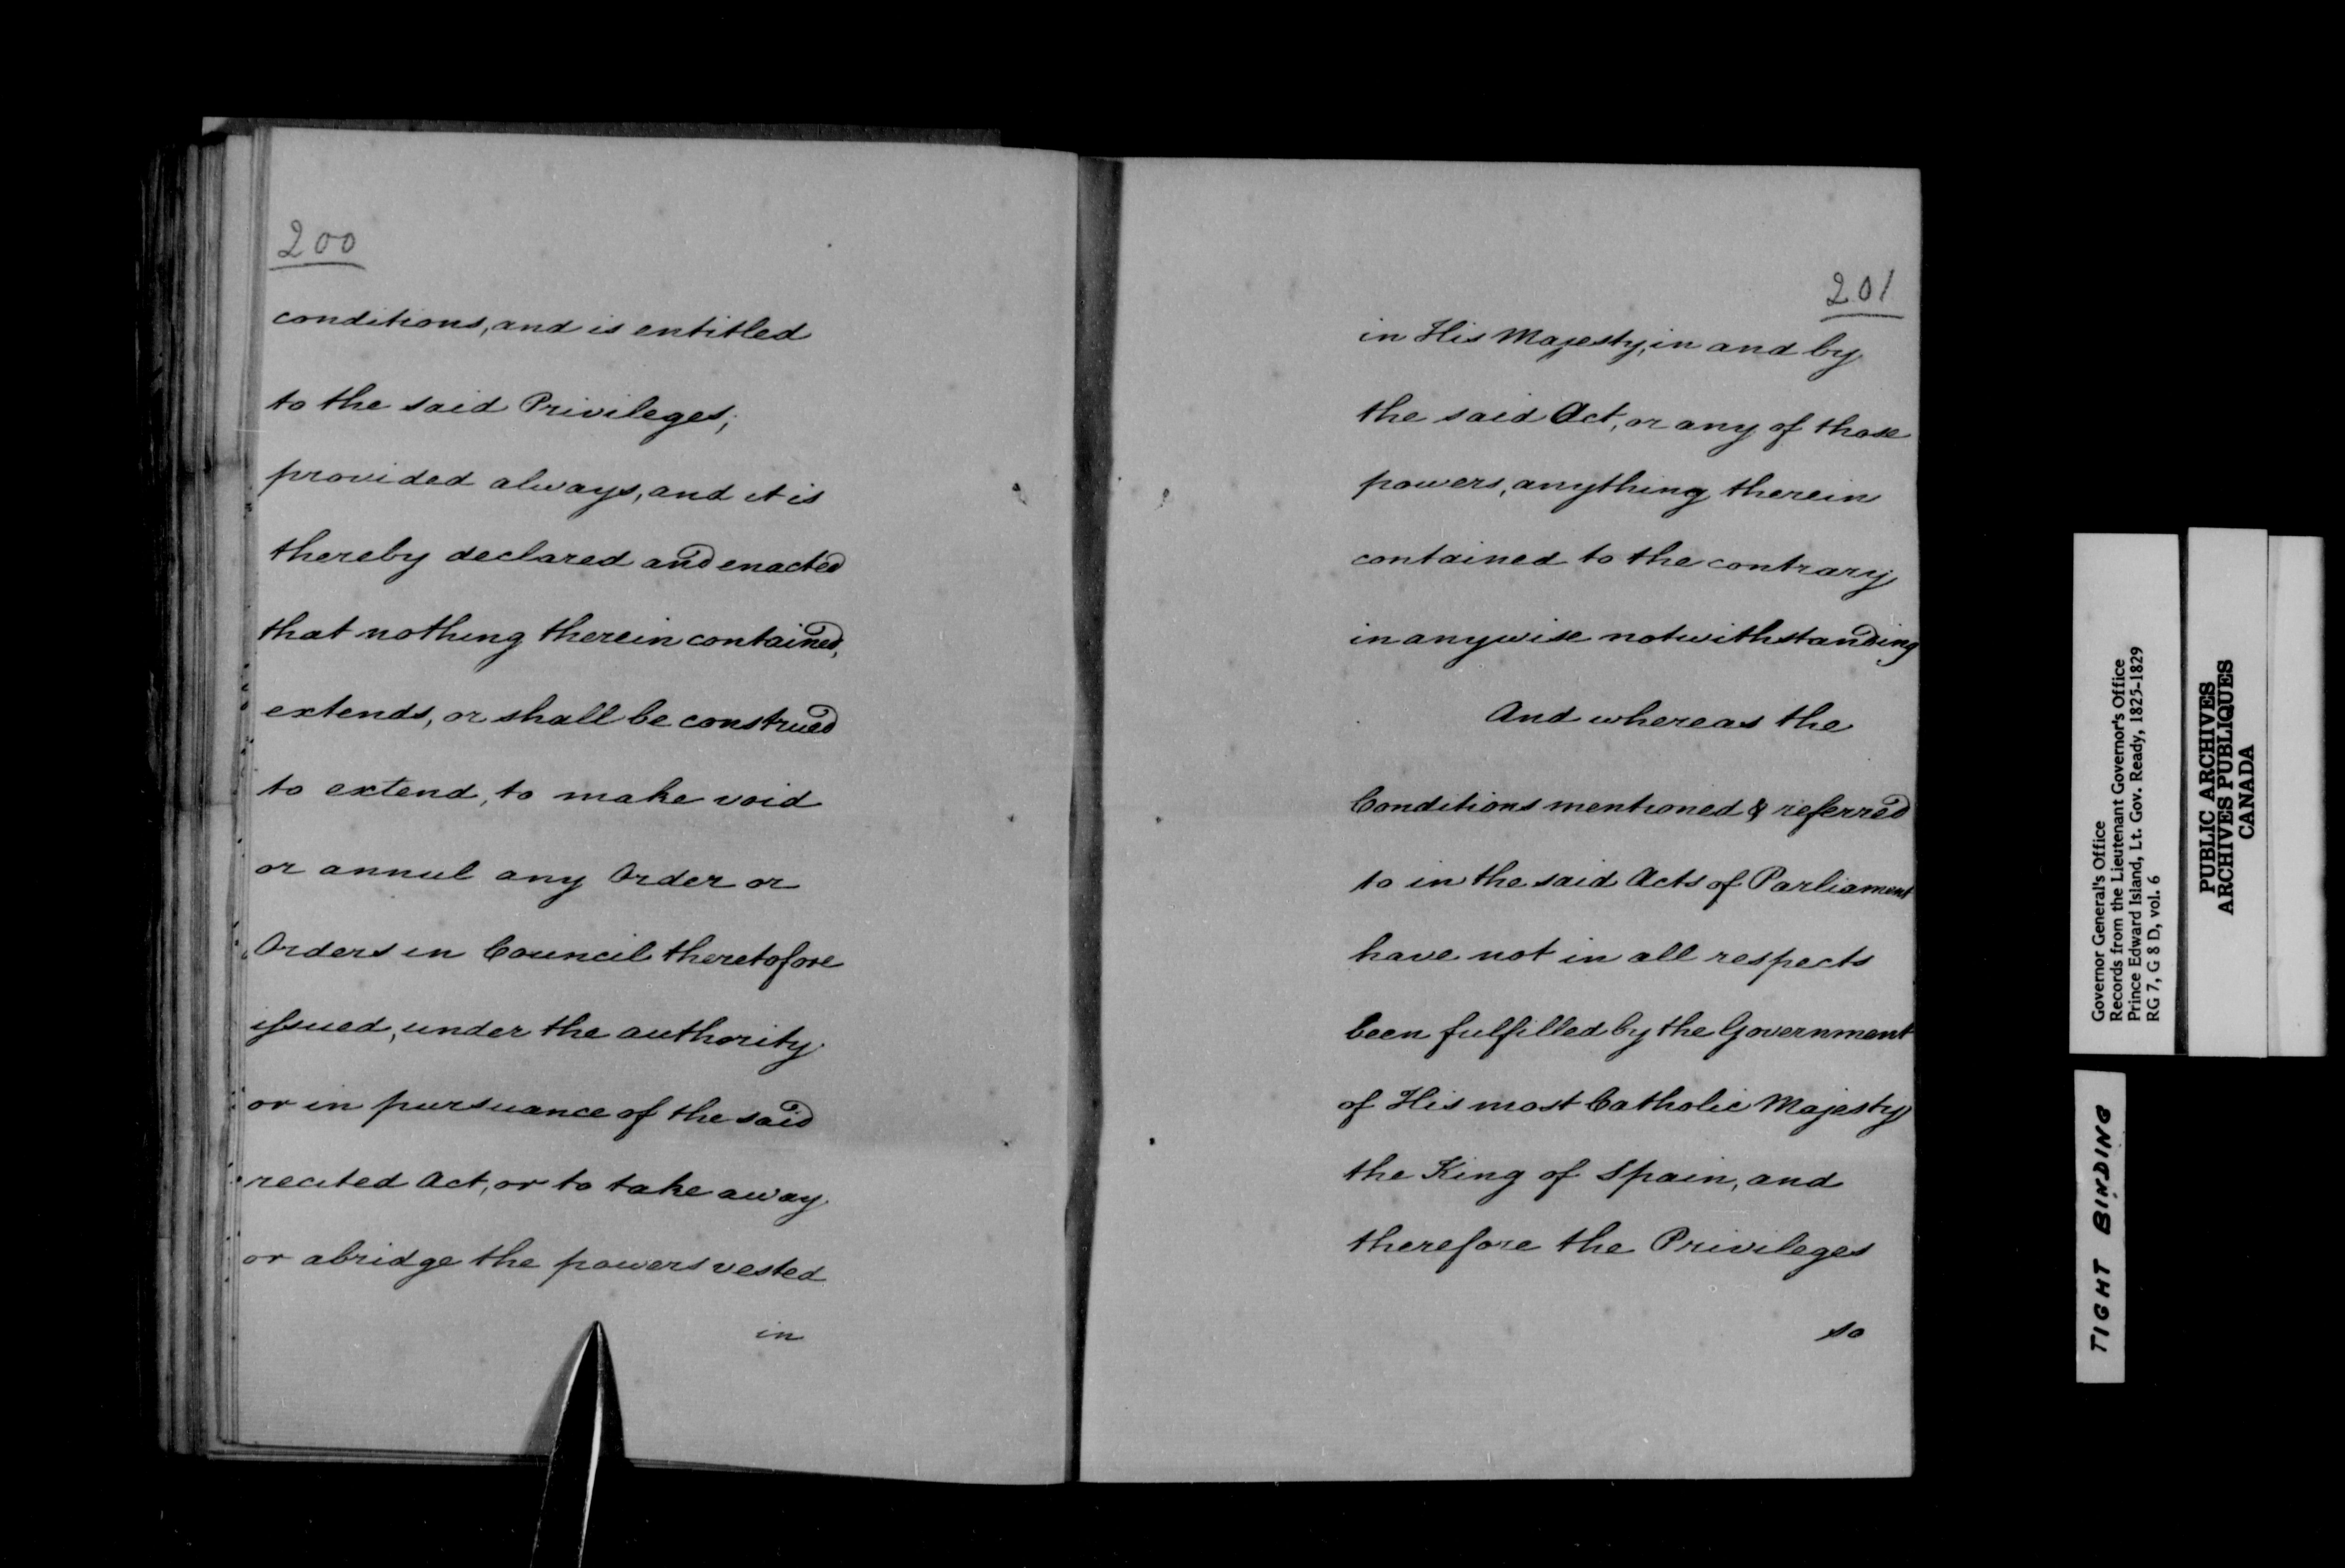 200
conditions, and is entitled
to the said Privileges;
provided always, and it is
thereby declared and enacted
that nothing therein contained,
extends, or shall be construed
to extend, to make void
or annul any Order or
Orders in Council theretofore
issued, under the authority
or in pursuance of the said
recited Act, or to take away
or abridge the powers vested
in
201
in His Majesty, in and by
the said Act, or any of those
powers, anything therein
contained to the contrary
in anywise notwithstanding
And whereas the
Conditions mentioned & referred
to in the said Acts of Parliament
have not in all respects
been fulfilled by the Government
of His most Catholic Majesty
the King of Spain, and
therefore the Privileges
so
Governor General's Office
Records from the Lieutenant Governor's Office
Prince Edward Island, Lt. Gov. Ready, 1825-1829
RG 7, G 8 D, vol. 6
PUBLIC ARCHIVES
ARCHIVES PUBLIQUES
CANADA
TIGHT BINDING